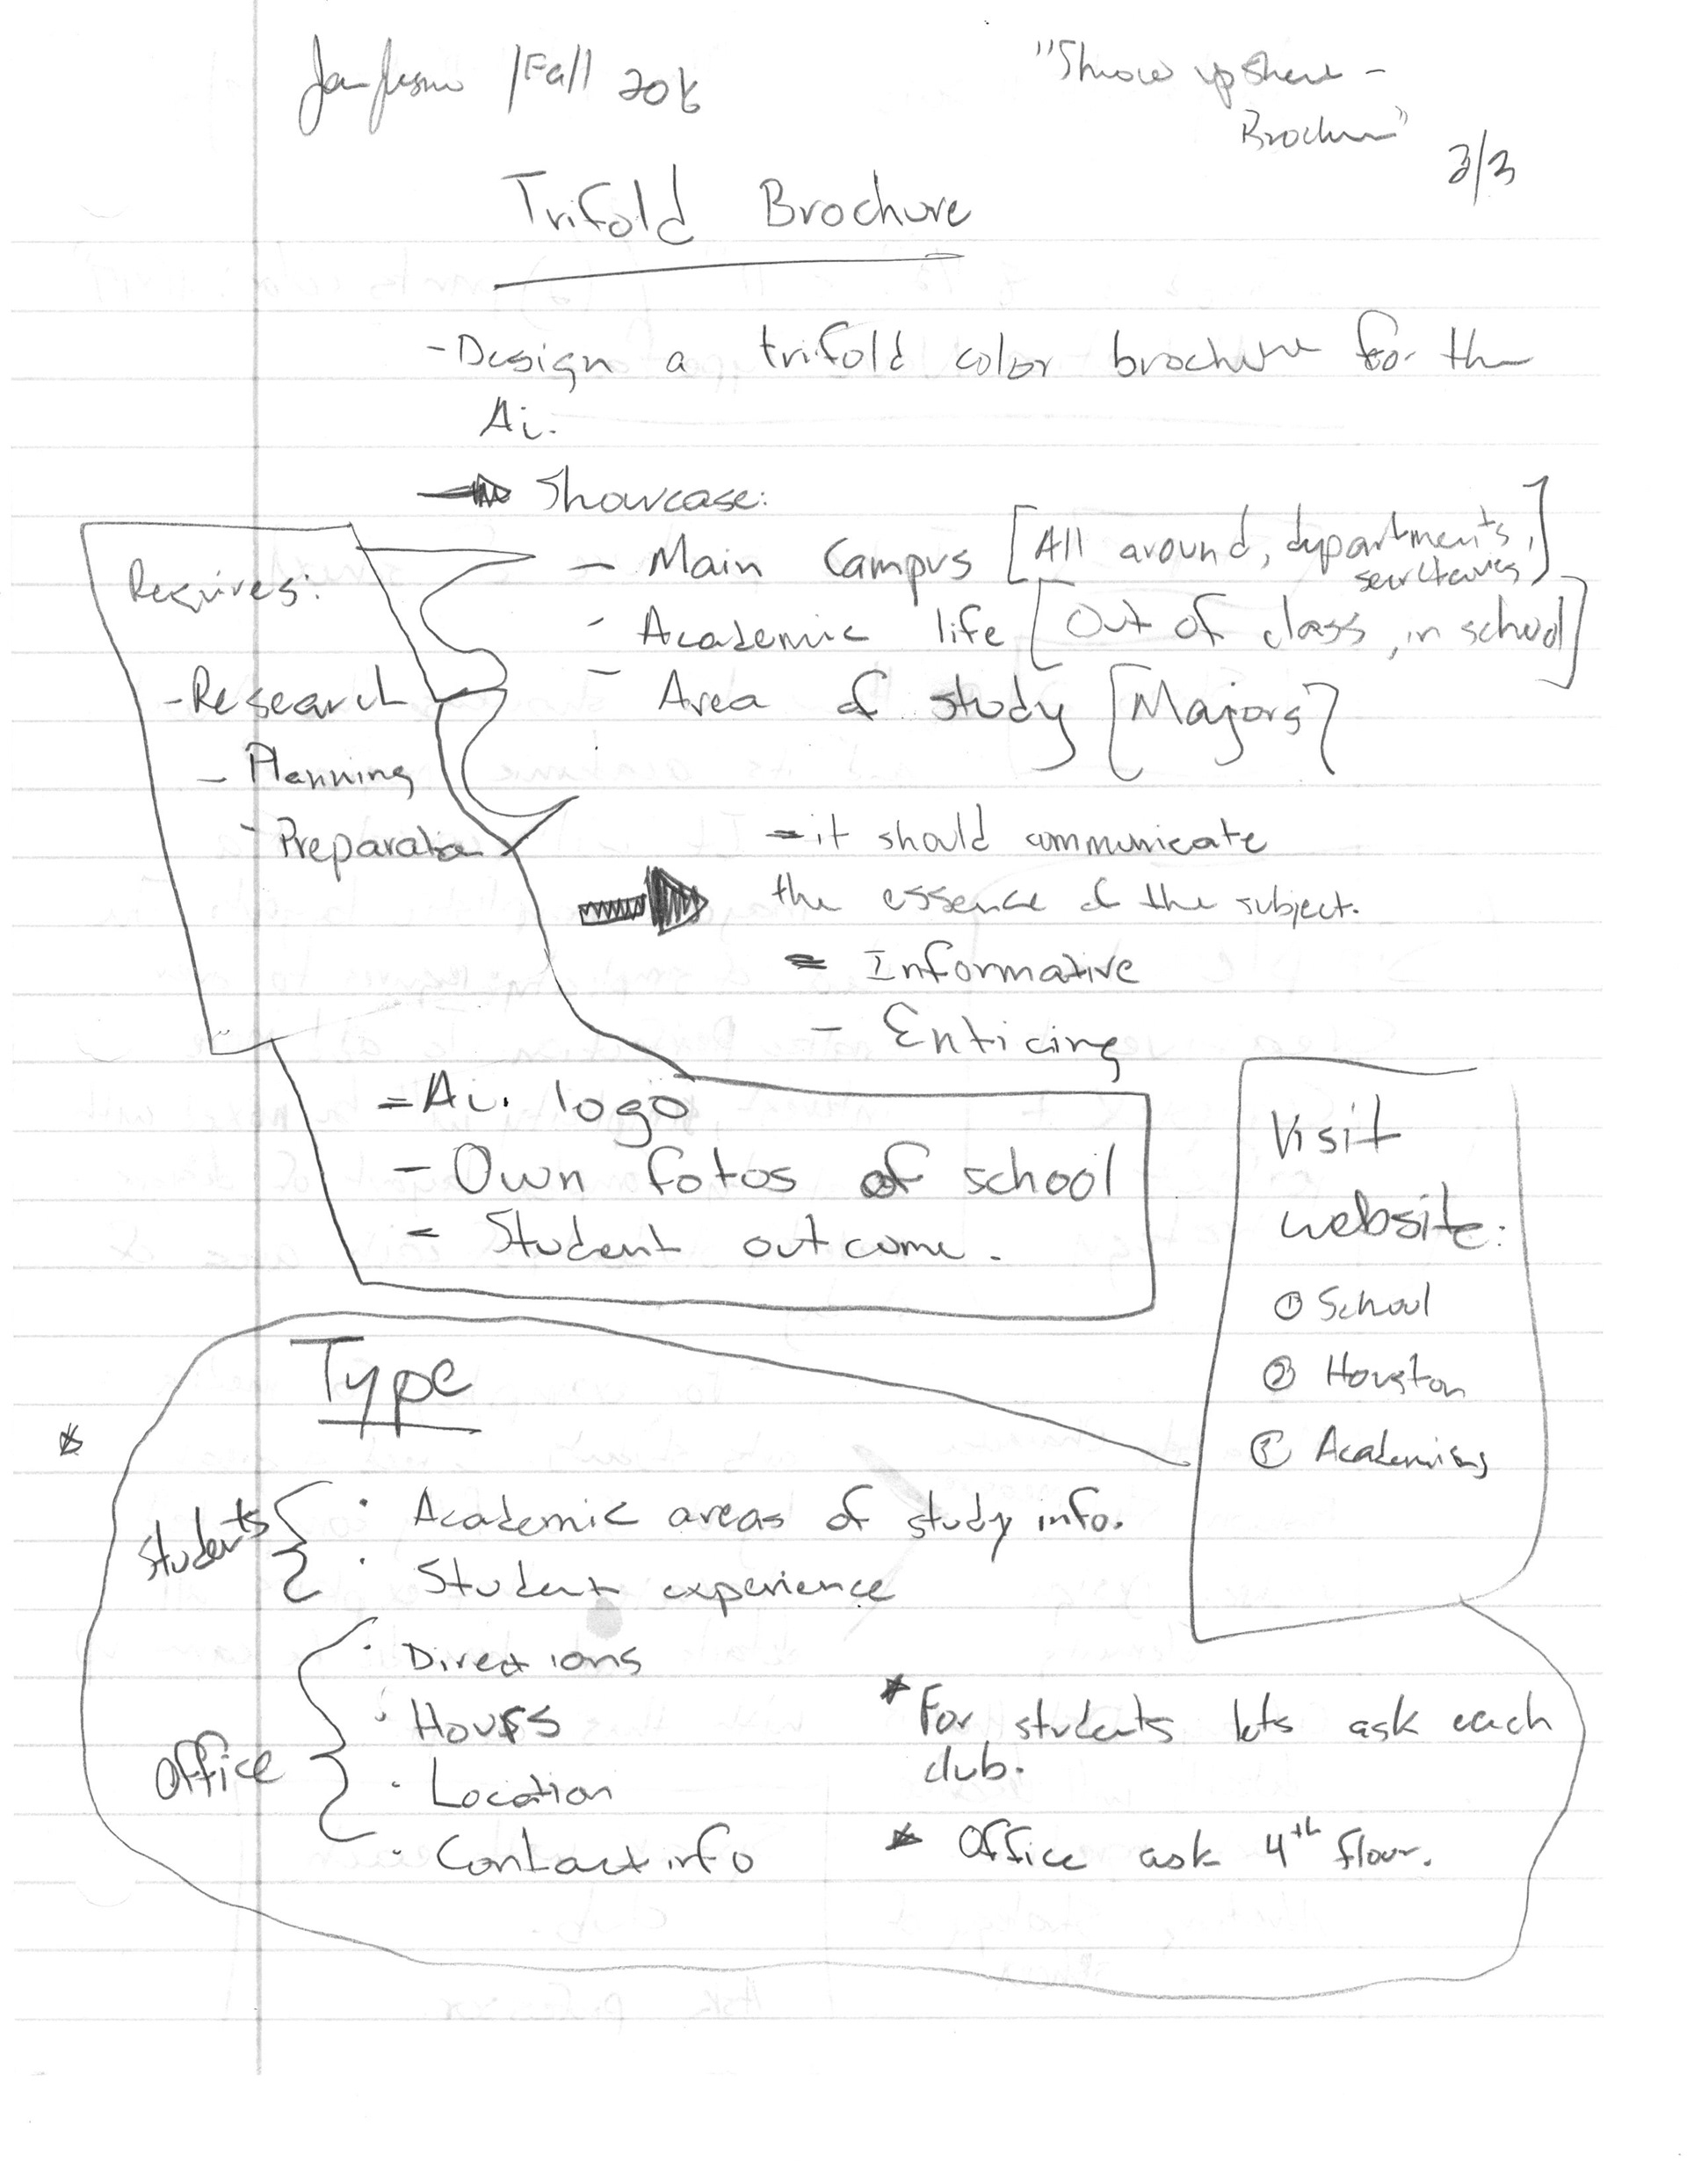 /Fall
"Show
Brochure"
3/3
Trifold Brochure
-Design a trifold color brochure for the
Ai.
Showcase:
- Main Campus [All around, departments,
secretaries]
- Academic life [Out of class, in school]
- Area of study [Majors]
Requires:
- Research
- Planning
- Preparation
- it should communicate
the essence of the subject.
- Informative
- Enticing
- Ai. logo
- Own fotos of school
- Student outcome.
Visit
website:
① School
② Houston
③ Academics
Type
*
Students
· Academic areas of study info.
· Student experience
Office
· Directions
· Hours
· Location
· Contact info
* For students lets ask each
club.
* Office ask 4th floor.